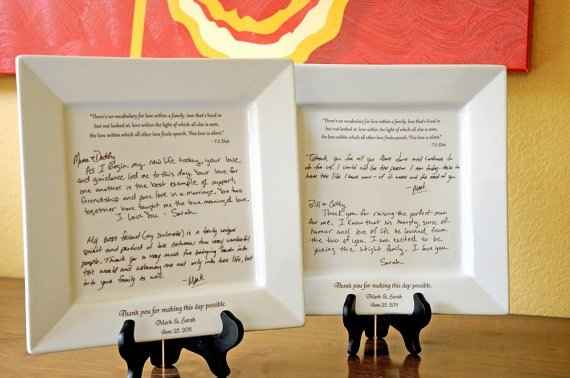 "There's no vocabulary for love within a family, love that's lived in
but not looked at, love within the light of which all else is seen,
the love within which all other love finds speech. This love is silent."
- T.S. Eliot
Mama & Daddy
As I begin my new life today, your love
and guidance led me to this day. Your love for
one another is the best example of support,
friendship and pure love in a marriage. You two
together have taught me the true meaning of love.
I Love You - Sarah
My best friend (my soulmate) is a
spirit and product of
people. Thank you very much for bringing Sarah into
this world and welcoming me not only into her life, but
into your family as well. -Mark
Thank you for making this day possible.
Mark & Sarah
June 25, 2011
"There's no vocabulary for love within a family, love that's lived in
but not looked at, love within the light of which all else is seen,
the love within which all other love finds speech. This love is silent."
- T.S. Eliot
Thank you for all you have done and continue to
do for us. I would not be the person I am today
- Mark
Bill & Cathy
Thank you for raising the perfect man
for me. I know that his honesty, sense of
humor and love of life he learned from
the two of you. I am excited to be
joining the Wright family. I love you.
Sarah
Thank you for making this day possible.
Mark & Sarah
June 25, 2011